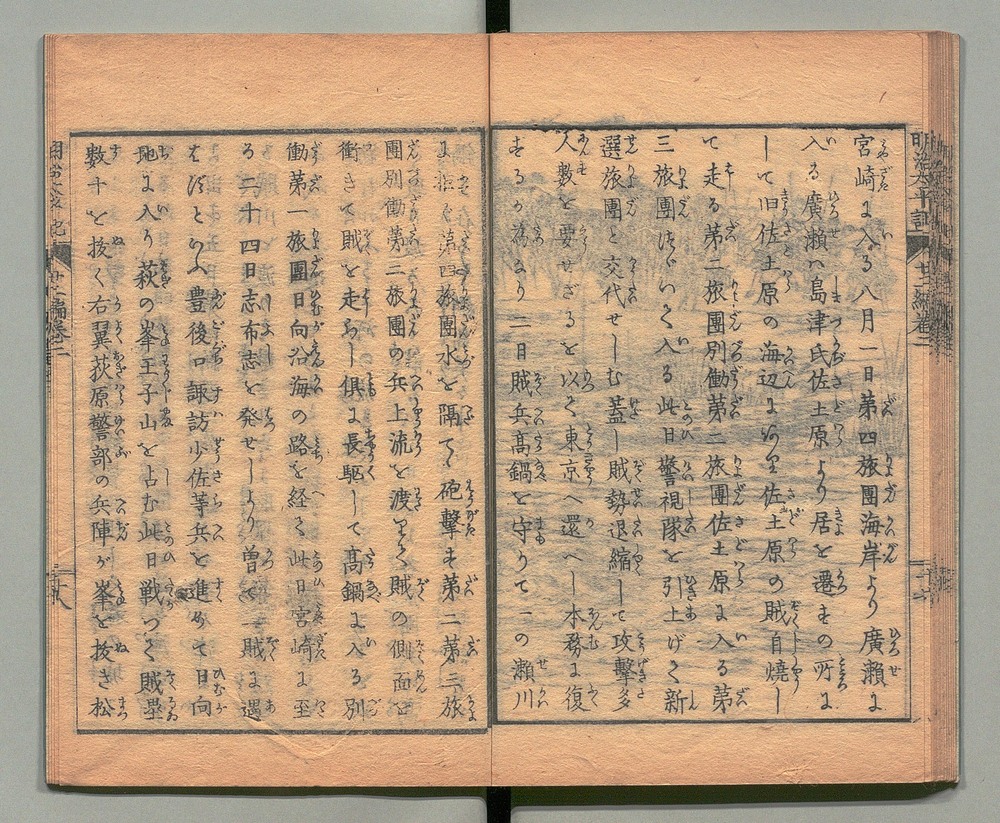 明治太平記 廿二編巻二
宮崎に入る八月一日第四旅團海岸より廣瀬に
入る廣瀬ハ島津氏佐土原より居を遷もの所に
して旧佐土原の海辺にあり佐土原の賊自燒し
て走る第二旅團別働第二旅團佐土原に入る第
三旅團法いて入る此日警視隊を引上げて新
選旅團と交代せしむ蓋し賊勢退縮して攻擊多
人數を要せざるを以て東京へ還へし本務に復
するが為なり二日賊兵髙鍋を守りて一の瀬川
に拒む第四旅團水を隔て砲擊す第二第三旅
團別働第二旅團の兵上流を渡りて賊の側面を
衝きて賊を走らし倶に長駆して髙鍋に入る別
働第一旅團日向沿海の路を経て此日宮崎に至
る二十四日志布志を発せしより曽て一賊に遇
はずといふ豊後口諏訪少佐等兵を進めて日向
地に入り萩の峯王子山を占む此日戦つて賊壘
數十を抜く右翼荻原警部の兵陣が峯を抜き松